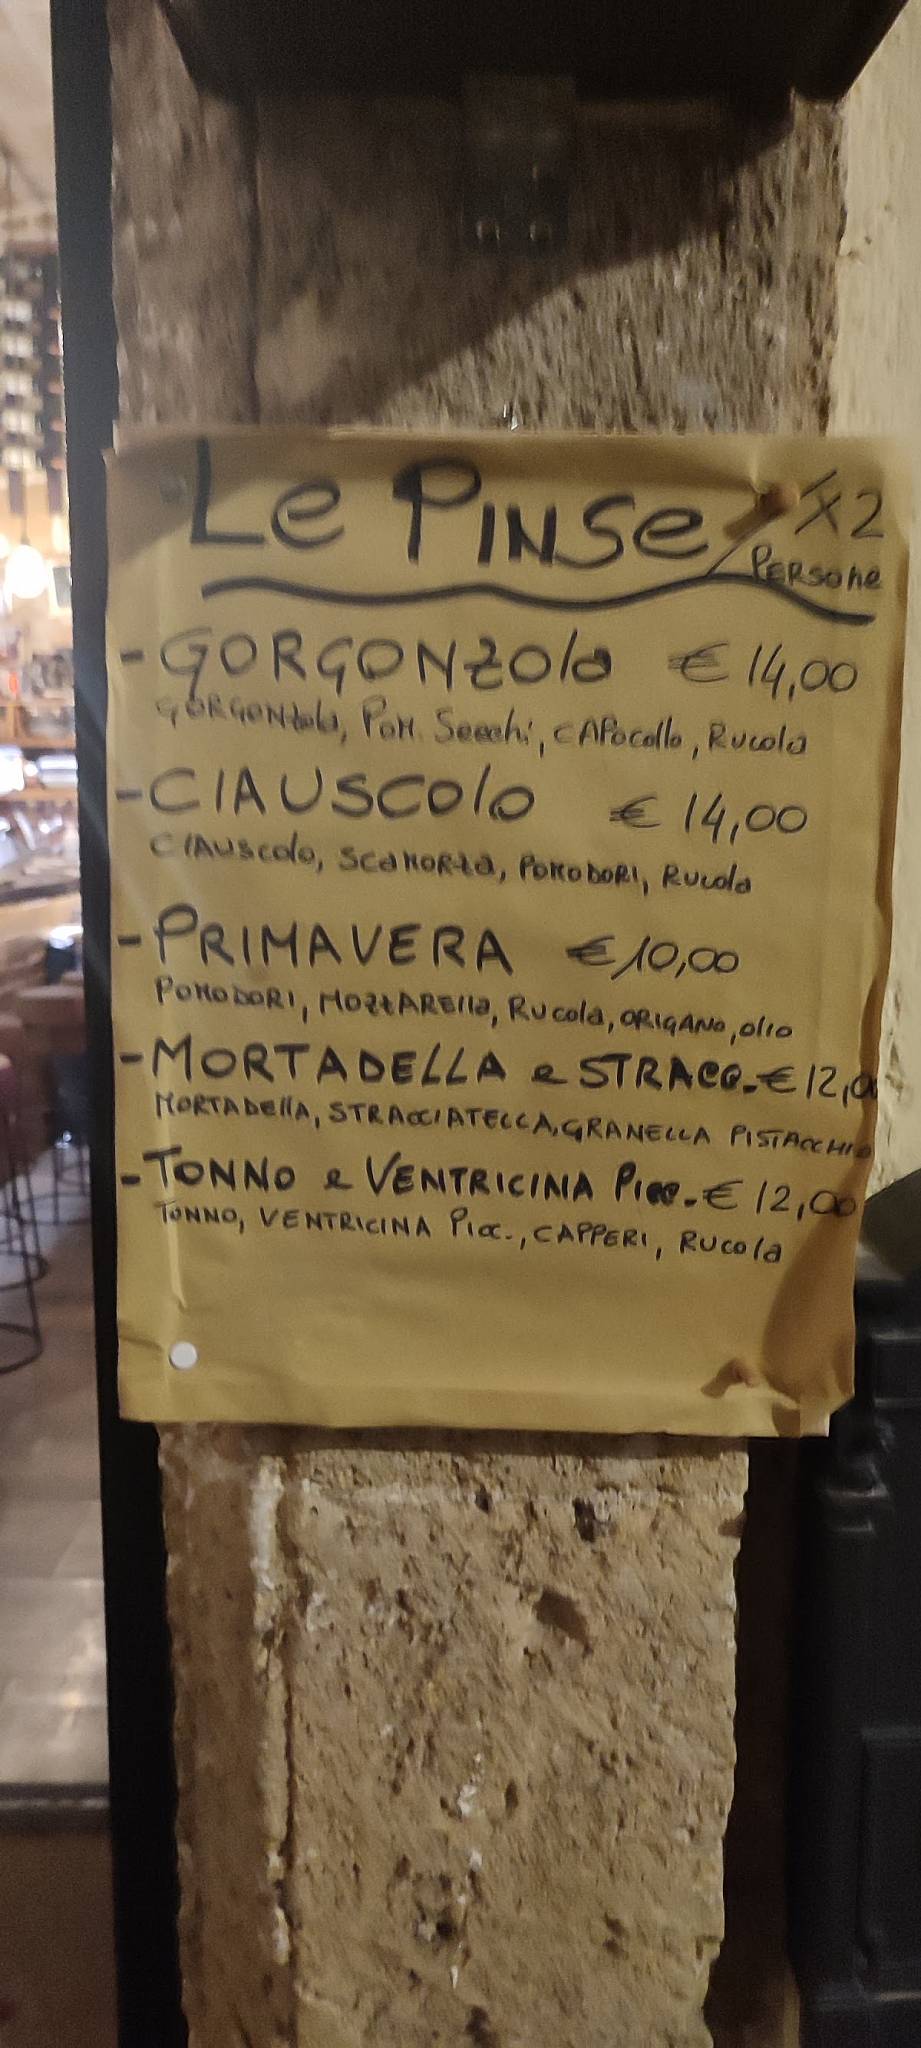 Le PINSe X2
PERSONe
- GORGONZOla € 14,00
GORGONZola, POM. Secchi, CAPocollo, RUcola
- CIAUSCOlO € 14,00
CIAUScolo, SCaMORZa, POMODORI, RUcola
- PRIMAVERA € 10,00
POMODORI, MOZZARElla, RUcola, ORIGANO, olio
- MORTADELLA e STRACC. € 12,00
MORTADElla, STRACCIATELLA, GRANELLA PISTACCHIO
- TONNO e VENTRICINA PICC. € 12,00
TONNO, VENTRICINA PICC., CAPPERI, RUcola